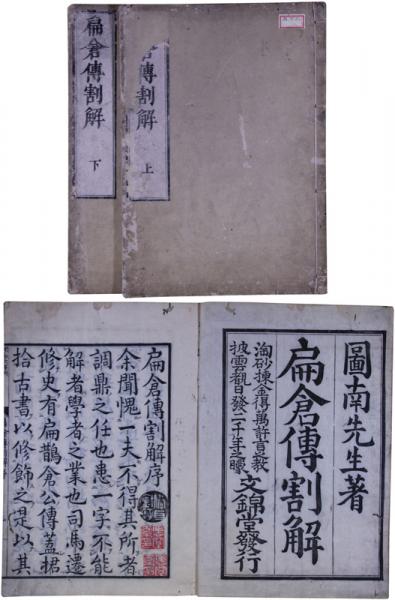 扁倉傳割解 下
倉傳割解 上
圖南先生著
扁倉傳割解
淘砂揀金得萬許百穀
披雲觀日發二千年之曚
文錦堂發行
扁倉傳割解序
余聞愧一夫不得其所者
調鼎之任也患一字不能
解者學者之業也司馬遷
修史有扁鵲倉公傳蓋捃
拾古書以修飾之是以其